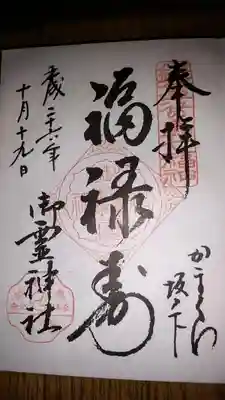 奉拝
かまくら
坂ノ下
福禄寿
御霊神社
歳二十六年
十月十九日